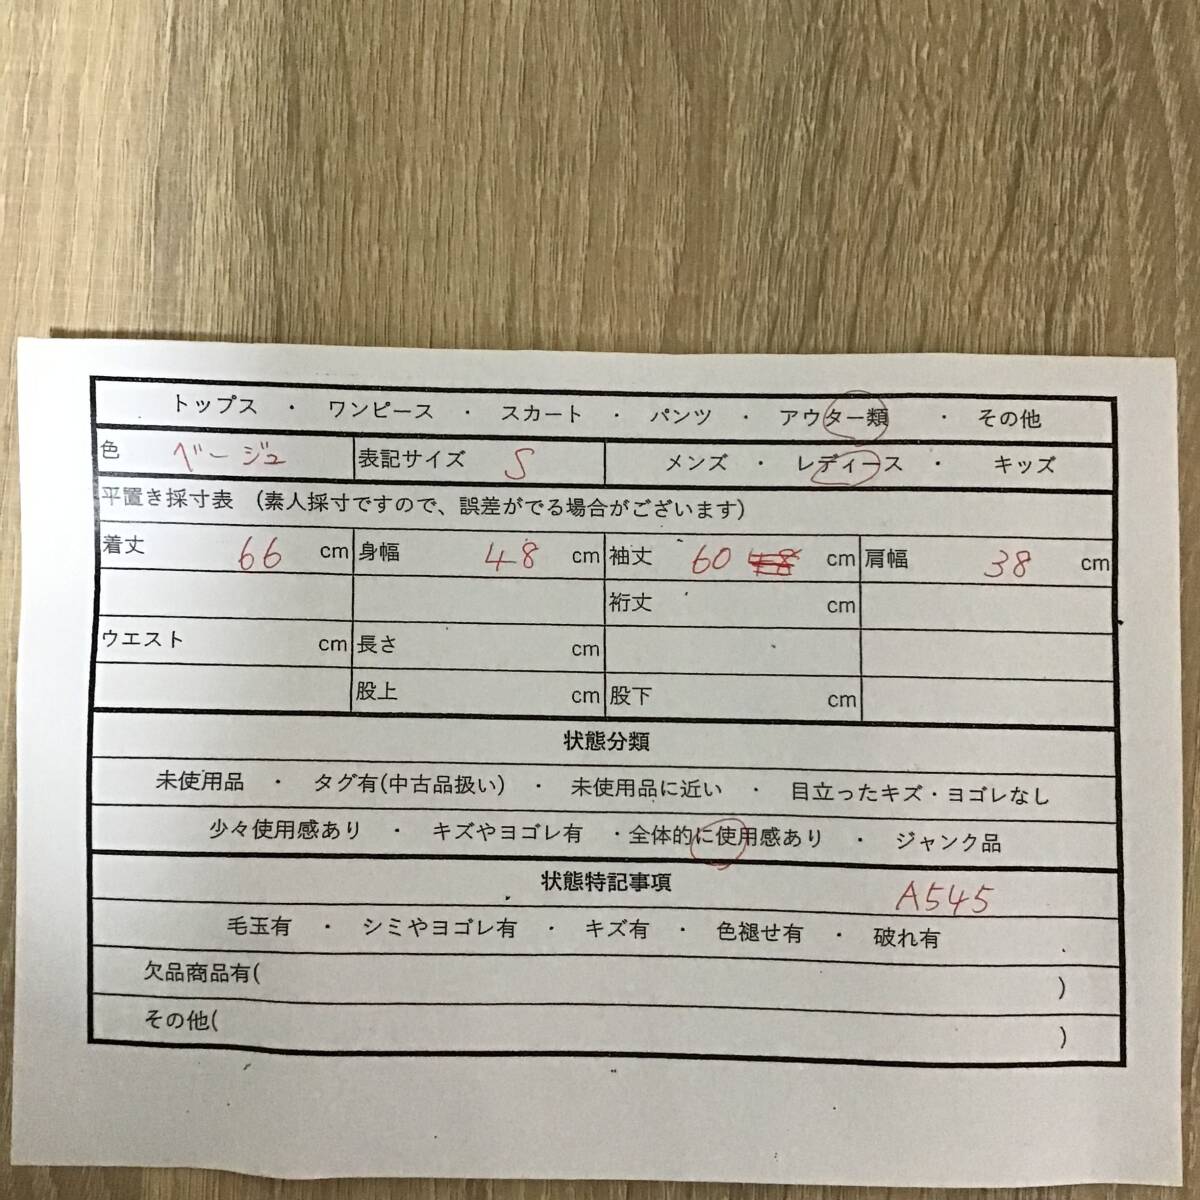 トップス ・ ワンピース ・ スカート ・ パンツ ・ アウター類 ・ その他
色 ベージュ 表記サイズ S メンズ ・ レディース ・ キッズ
平置き採寸表 (素人採寸ですので、誤差がでる場合がございます)
着丈 66 cm 身幅 48 cm 袖丈 60 cm 肩幅 38 cm
裄丈 cm
ウエスト cm 長さ cm
股上 cm 股下 cm
状態分類
未使用品 ・ タグ有(中古品扱い) ・ 未使用品に近い ・ 目立ったキズ・ヨゴレなし
少々使用感あり ・ キズやヨゴレ有 ・全体的に使用感あり ・ ジャンク品
状態特記事項 A545
毛玉有 ・ シミやヨゴレ有 ・ キズ有 ・ 色褪せ有 ・ 破れ有
欠品商品有( )
その他( )